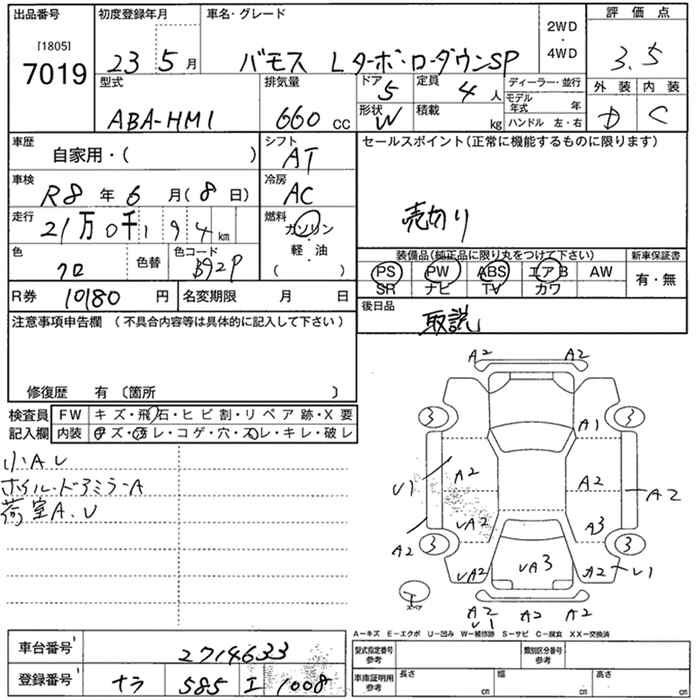 出品番号 初度登録年月 車名・グレード 2WD・4WD 評価点
[1805] 7019 23 5月 バモス Lターボ・ローダウンSP 3.5
型式 排気量 ドア 5 定員 4人 ディーラー・並行 外装 内装
ABA-HM1 660 CC 形状 W 積載 kg モデル年式 年 D C
ハンドル 左・右
車歴 自家用・( ) シフト AT セールスポイント(正常に機能するものに限ります)
車検 R8年6月(8日) 冷房 AC
走行 21万0千194km 燃料 ガソリン・軽油・( ) 売切り
色 クロ 色替 色コード B92P
装備品(純正品に限り丸をつけて下さい) 新車保証書
PS PW ABS エアB AW 有・無
SR ナビ TV カワ
R券 10180円 名変期限 月 日 後日品 取説
注意事項申告欄 (不具合内容等は具体的に記入して下さい)
修復歴 有 〔箇所 〕
検査員記入欄 FW キズ・飛石・ヒビ割・リペア跡・X要
内装 キズ・汚レ・コゲ・穴・スレ・キレ・破レ
小A U
ホイル・ドアミラーA
荷室A.U
A2 A2
3 3
A1
U1 A2 A2 A2
UA2 A3
A2 3 3
UA2 UA3 A2 U1
スペア
A2 A2 A2
U1
A-キズ E-エクボ U-凹み W-補修跡 S-サビ C-腐食 XX-交換済
車台番号 2714633 型式指定番号 参考 類別区分番号 参考
登録番号 ナラ 585 エ 1008 車庫証明用 参考 長さ cm 幅 cm 高さ cm